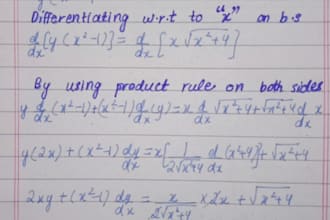 Differentiating w.r.t to "x" on b.s
d/dx [y (x²-1)] = d/dx [x √x²+4]
By using product rule on both sides
y d/dx (x²-1)+(x²-1) d/dx (y) = x d/dx √x²+4 + √x²+4 d/dx x
y(2x) + (x²-1) dy/dx = x[1/2√x²+4 d/dx (x²+4)] + √x²+4
2xy + (x²-1) dy/dx = x/2√x²+4 × 2x + √x²+4